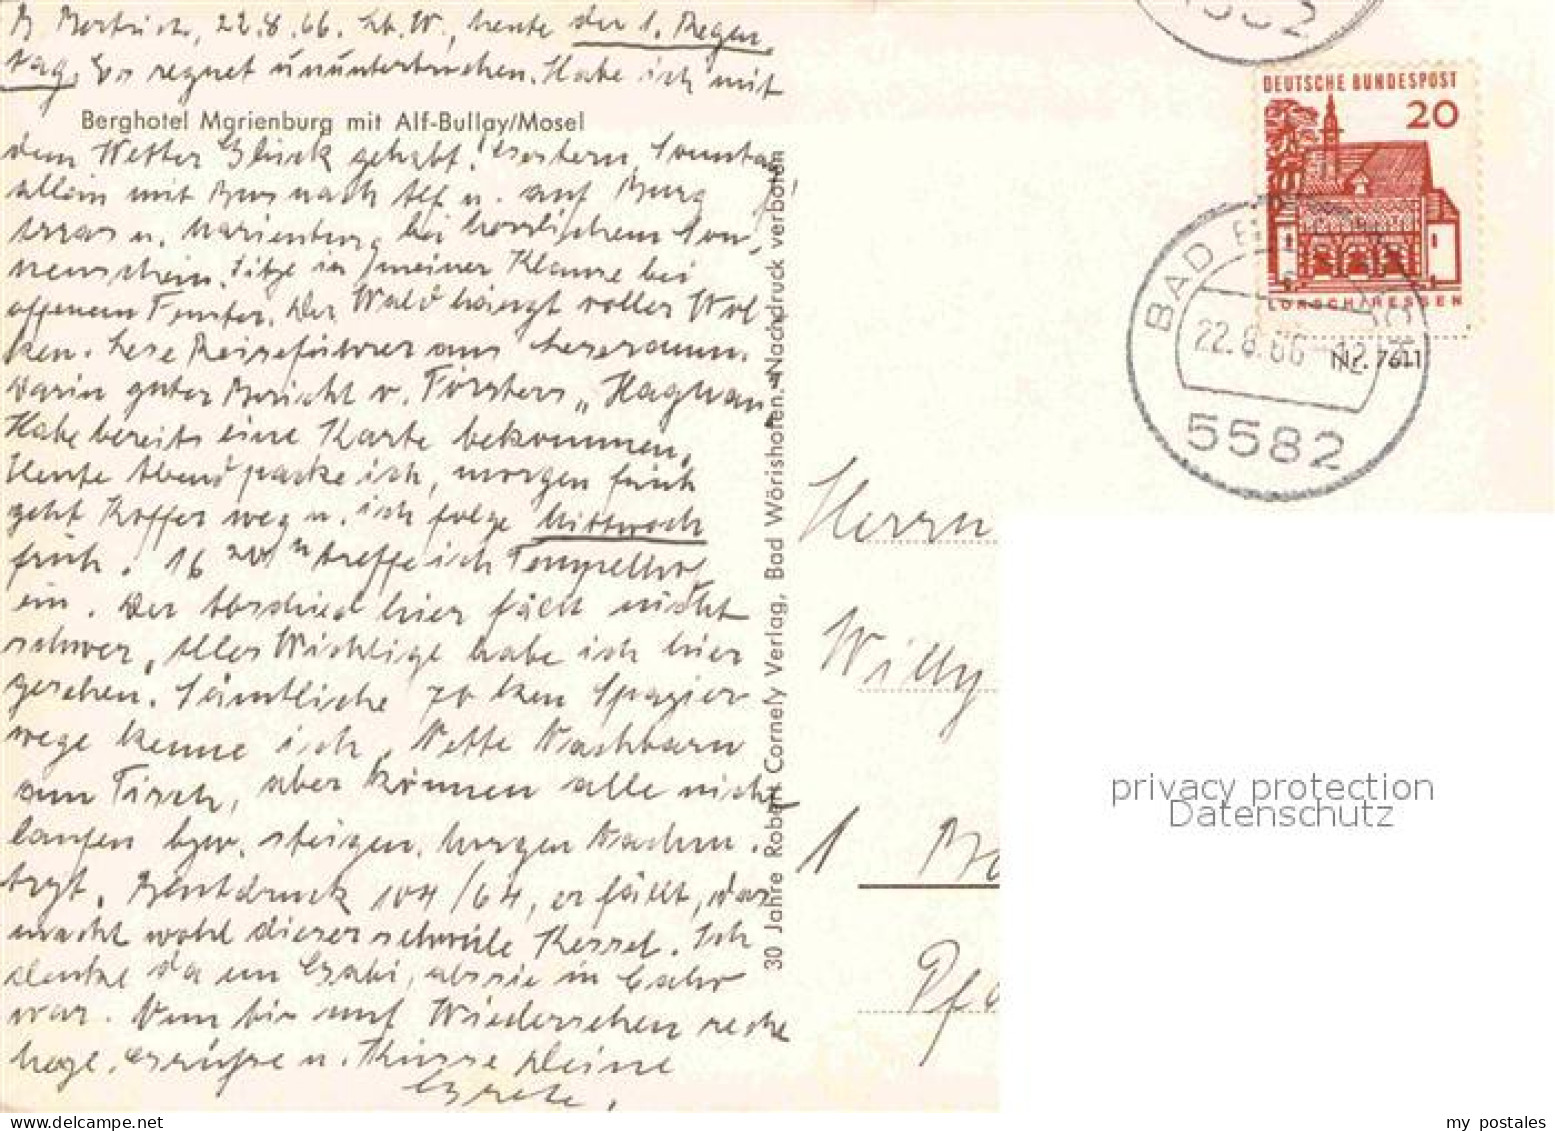 B Bertrich, 22.8.66. Lb. W., heute der 1. Regen-
tag. Es regnet ununterbrochen. Habe ich mit
Berghotel Marienburg mit Alf-Bullay/Mosel
dem Wetter Glück gehabt! Gestern, Sonntag
allein mit Bus nach Alf u. auf Burg
Arras u. Marienburg bei herrlichem Son-
nenschein. Sitze in meiner Klause bei
offenem Fenster. Der Wald hängt voller Wol-
ken. Lese Reiseführer aus Leseraum.
Darin guter Bericht v. Försters „Hagwan"
Habe bereits eine Karte bekommen.
Heute Abend packe ich, morgen früh
geht Koffer weg u. ich folge Mittwoch
früh. 16 treffe ich Tempelhof
ein. Der Abschied hier fällt nicht
schwer, alles Wichtige habe ich hier
gesehen. Sämtliche 70 km Spazier
wege kenne ich. Nette Nachbarn
am Tisch, aber können alle nicht
laufen bzw. steigen. Morgen Nachm.
Arzt. Blutdruck 104/64, er fällt, das
macht wohl dieser schwüle Kessel. Ich
denke da an Gabi, als sie in
war. Nun bis auf Wiedersehen
Grüße u. Küsse Deine
Grete.
30 Jahre Robert Cornely Verlag, Bad Wörishofen. Nachdruck verboten
DEUTSCHE BUNDESPOST
20
LORSCH/HESSEN
BAD
22.8.66-12
5582
Nr. 7611
Herrn
Willy
1 Be
Pfa
privacy protection
Datenschutz
my postales